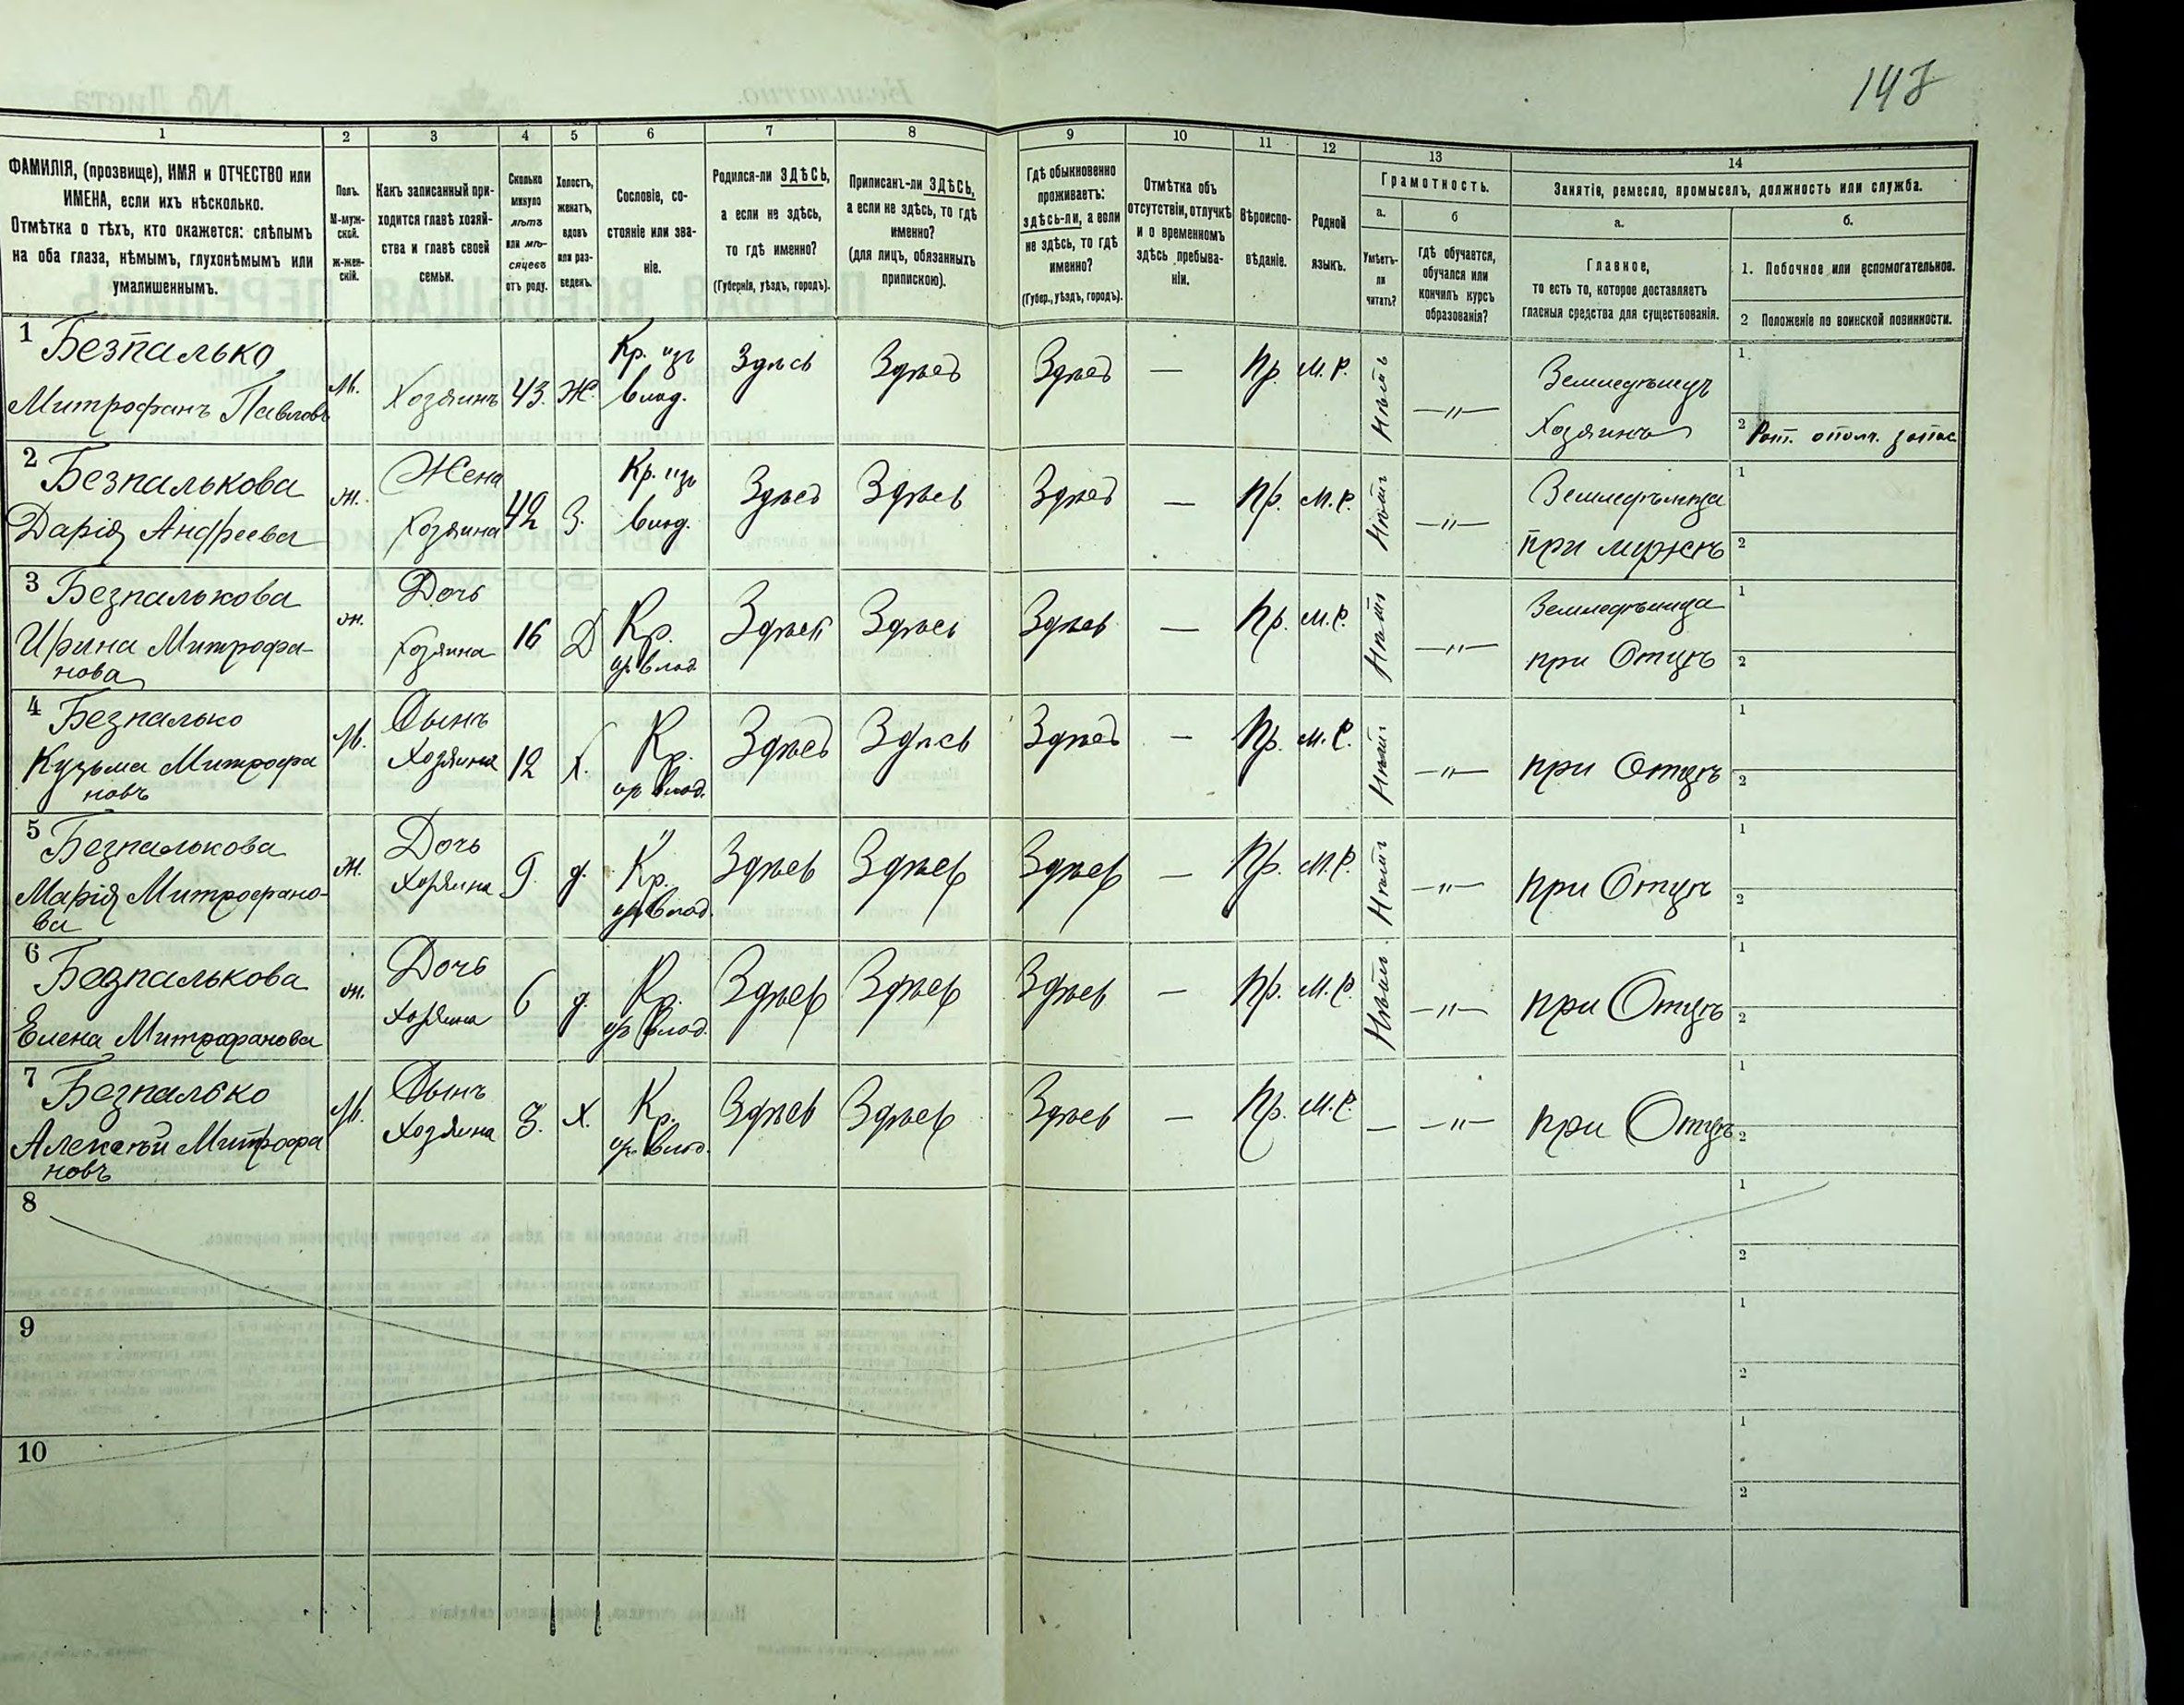 148
1 2 3 4 5 6 7 8 9 10 11 12 13 14
ФАМИЛІЯ, (прозвище), ИМЯ и ОТЧЕСТВО или
ИМЕНА, если ихъ нѣсколько.
Отмѣтка о тѣхъ, кто окажется: слѣпымъ
на оба глаза, нѣмымъ, глухонѣмымъ или
умалишеннымъ.
Полъ.
М-муж-
ской.
ж-жен-
скій.
Какъ записанный при-
ходится главѣ хозяй-
ства и главѣ своей
семьи.
Сколько
минуло
лѣтъ
или мѣ-
сяцевъ
отъ роду.
Холостъ,
женатъ,
вдовъ
или раз-
веденъ.
Сословіе, со-
стояніе или зва-
ніе.
Родился-ли ЗДѢСЬ,
а если не здѣсь,
то гдѣ именно?
(Губернія, уѣздъ, городъ).
Приписанъ-ли ЗДѢСЬ,
а если не здѣсь, то гдѣ
именно?
(для лицъ, обязанныхъ
припискою).
Гдѣ обыкновенно
проживаетъ:
здѣсь-ли, а если
не здѣсь, то гдѣ
именно?
(Губер., уѣздъ, городъ).
Отмѣтка объ
отсутствіи, отлучкѣ
и о временномъ
здѣсь пребыва-
ніи.
Вѣроиспо-
вѣданіе.
Родной
языкъ.
Грамотность.
а.
Умѣетъ-
ли
читать?
б
Гдѣ обучается,
обучался или
кончилъ курсъ
образованія?
Занятіе, ремесло, промыселъ, должность или служба.
а.
Главное,
то есть то, которое доставляетъ
гласныя средства для существованія.
б.
1. Побочное или вспомогательное.
2 Положеніе по воинской повинности.
1 Безпалько
Митрофанъ Павловъ
М.
Хозяинъ
43.
Ж.
Кр. изъ
влад.
Здѣсь
Здѣсь
Здѣсь
—
Пр.
М.Р.
Нѣтъ
—"—
Земледѣлецъ
Хозяинъ
1
2 Рат. ополч. запас
2 Безпалькова
Дарія Андреева
Ж.
Жена
Хозяина
42
З.
Кр. изъ
влад.
Здѣсь
Здѣсь
Здѣсь
—
Пр.
М.Р.
Нѣтъ
—"—
Земледѣлица
при мужѣ
1
2
3 Безпалькова
Ирина Митрофа-
нова
Ж.
Дочь
Хозяина
16
Д
Кр.
из влад.
Здѣсь
Здѣсь
Здѣсь
—
Пр.
М.Р.
Нѣтъ
—"—
Земледѣлица
при Отцѣ
1
2
4 Безпалько
Кузьма Митрофа
новъ
М.
Сынъ
Хозяина
12
Х.
Кр.
из влад.
Здѣсь
Здѣсь
Здѣсь
—
Пр.
М.Р.
Нѣтъ
—"—
при Отцѣ
1
2
5 Безпалькова
Марія Митрофано-
ва
Ж.
Дочь
Хозяина
9.
д.
Кр.
из влад.
Здѣсь
Здѣсь
Здѣсь
—
Пр.
М.Р.
Нѣтъ
—"—
при Отцѣ
1
2
6 Безпалькова
Елена Митрофанова
Ж.
Дочь
Хозяина
6
д.
Кр.
из влад.
Здѣсь
Здѣсь
Здѣсь
—
Пр.
М.Р.
Нѣтъ.
—"—
при Отцѣ
1
2
7 Безпалько
Алексѣй Митрофа
новъ
М.
Сынъ
Хозяина
3.
Х.
Кр.
из влад.
Здѣсь
Здѣсь
Здѣсь
—
Пр.
М.Р.
—
—"—
при Отцѣ
1
2
8
1
2
9
1
2
10
1
2